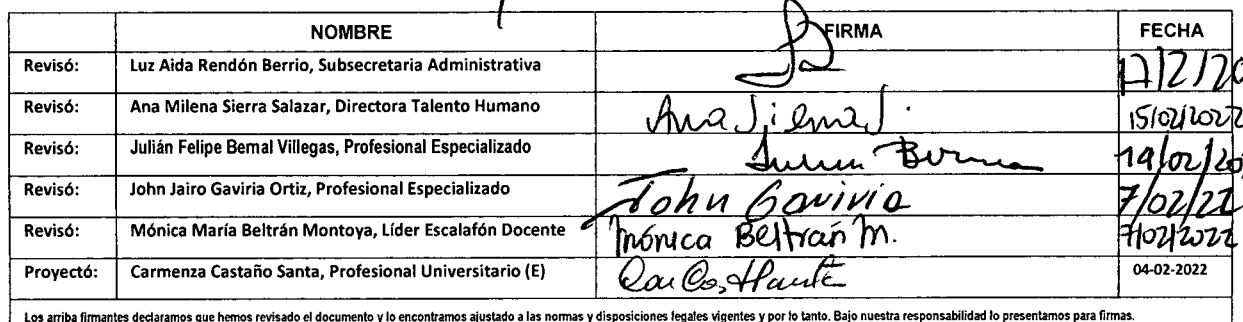 NOMBRE FIRMA FECHA
Revisó: Luz Aida Rendón Berrio, Subsecretaria Administrativa 17/2/20
Revisó: Ana Milena Sierra Salazar, Directora Talento Humano Ana Sierra S. 15/02/2022
Revisó: Julián Felipe Bernal Villegas, Profesional Especializado 14/02/20
Revisó: John Jairo Gaviria Ortiz, Profesional Especializado John Gaviria 7/02/22
Revisó: Mónica María Beltrán Montoya, Líder Escalafón Docente Mónica Beltrán M. 7/02/2022
Proyectó: Carmenza Castaño Santa, Profesional Universitario (E) 04-02-2022
Los arriba firmantes declaramos que hemos revisado el documento y lo encontramos ajustado a las normas y disposiciones legales vigentes y por lo tanto. Bajo nuestra responsabilidad lo presentamos para firmas.